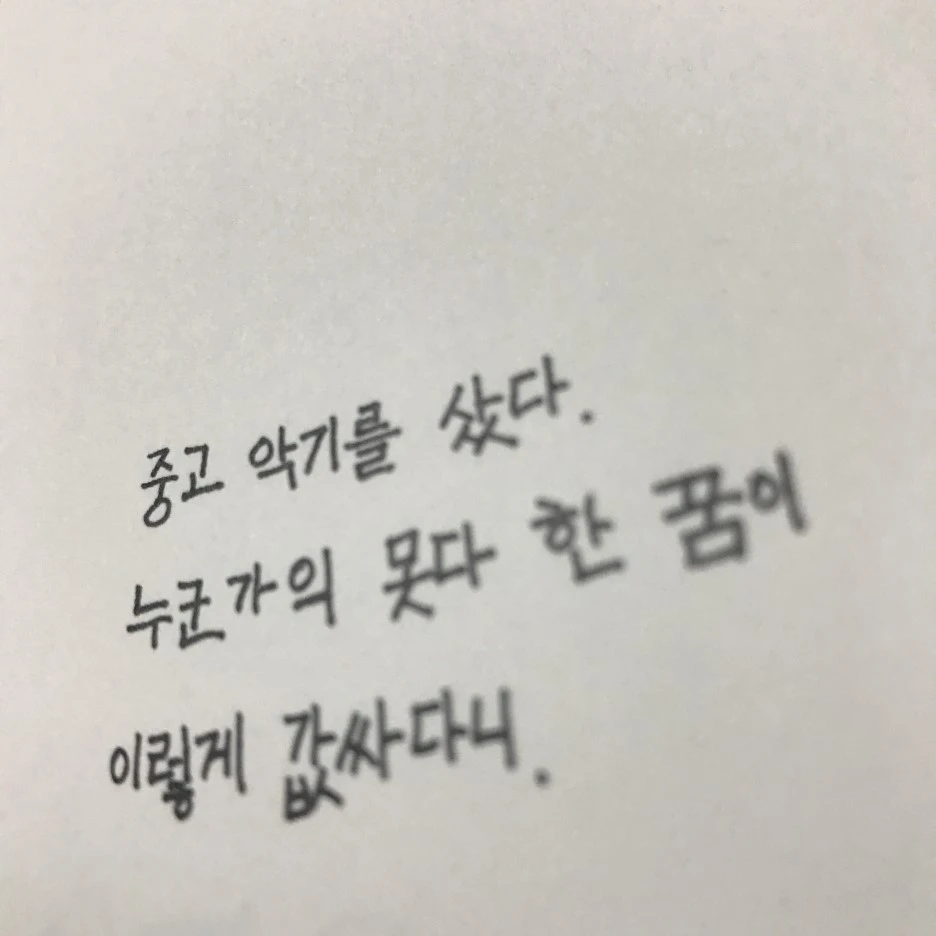 중고 악기를 샀다.
누군가의 못다 한 꿈이
이렇게 값싸다니.